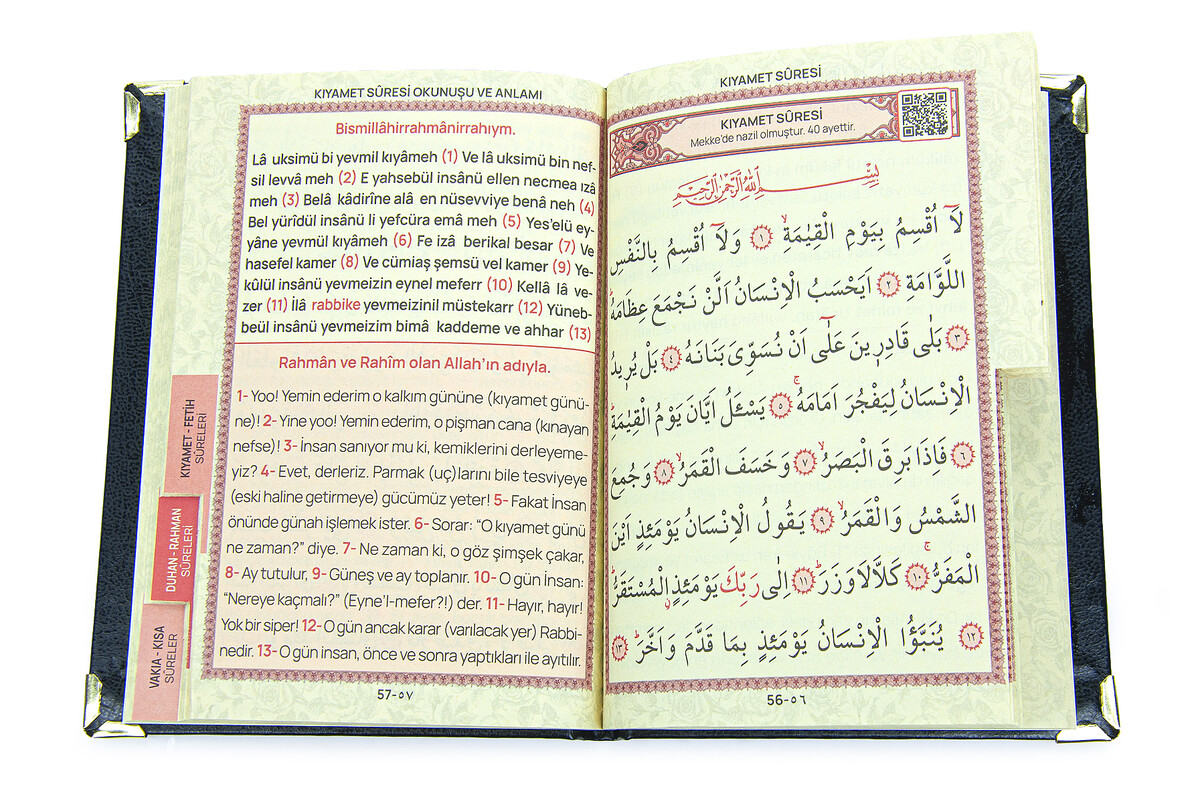 KIYAMET SÛRESİ OKUNUŞU VE ANLAMI
Bismillâhirrahmânirrahıym.
Lâ uksimü bi yevmil kıyâmeh (1) Ve lâ uksimü bin nef-
sil levvâ meh (2) E yahsebül insânü ellen necmea ızâ
meh (3) Belâ kâdirîne alâ en nüsevviye benâ neh (4)
Bel yürîdül insânü li yefcüra emâ meh (5) Yes'elü ey-
yâne yevmül kıyâmeh (6) Fe izâ berikal besar (7) Ve
hasefel kamer (8) Ve cümiaş şemsü vel kamer (9) Ye-
kûlül insânü yevmeizin eynel meferr (10) Kellâ lâ ve-
zer (11) İlâ rabbike yevmeizinil müstekarr (12) Yüneb-
beül insânü yevmeizim bimâ kaddeme ve ahhar (13)
Rahmân ve Rahîm olan Allah'ın adıyla.
1- Yoo! Yemin ederim o kalkım gününe (kıyamet günü-
ne)! 2- Yine yoo! Yemin ederim, o pişman cana (kınayan
nefse)! 3- İnsan sanıyor mu ki, kemiklerini derleyeme-
yiz? 4- Evet, derleriz. Parmak (uç)larını bile tesviyeye
(eski haline getirmeye) gücümüz yeter! 5- Fakat İnsan
önünde günah işlemek ister. 6- Sorar: “O kıyamet günü
ne zaman?” diye. 7- Ne zaman ki, o göz şimşek çakar,
8- Ay tutulur, 9- Güneş ve ay toplanır. 10- O gün İnsan:
“Nereye kaçmalı?” (Eyne'l-mefer?!) der. 11- Hayır, hayır!
Yok bir siper! 12- O gün ancak karar (varılacak yer) Rabbi-
nedir. 13- O gün insan, önce ve sonra yaptıkları ile ayıtılır.
57-٥٧
KIYAMET - FETİH
SÛRELERİ
DUHAN - RAHMAN
SÛRELERİ
VAKIA - KISA
SÛRELER
KIYAMET SÛRESİ
KIYAMET SÛRESİ
Mekke'de nazil olmuştur. 40 ayettir.
بِسْمِ اللّٰهِ الرَّحْمٰنِ الرَّحِيمِ
لَٓا اُقْسِمُ بِيَوْمِ الْقِيٰمَةِۙ ﴿١﴾ وَلَٓا اُقْسِمُ بِالنَّفْسِ
اللَّوَّامَةِ ﴿٢﴾ اَيَحْسَبُ الْاِنْسَانُ اَلَّنْ نَجْمَعَ عِظَامَهُۜ
﴿٣﴾ بَلٰى قَادِر۪ينَ عَلٰٓى اَنْ نُسَوِّيَ بَنَانَهُ ﴿٤﴾ بَلْ يُر۪يدُ
الْاِنْسَانُ لِيَفْجُرَ اَمَامَهُۚ ﴿٥﴾ يَسْـَٔلُ اَيَّانَ يَوْمُ الْقِيٰمَةِۜ
﴿٦﴾ فَاِذَا بَرِقَ الْبَصَرُۙ ﴿٧﴾ وَخَسَفَ الْقَمَرُۙ ﴿٨﴾ وَجُمِعَ
الشَّمْسُ وَالْقَمَرُۙ ﴿٩﴾ يَقُولُ الْاِنْسَانُ يَوْمَئِذٍ اَيْنَ
الْمَفَرُّۚ ﴿١٠﴾ كَلَّا لَا وَزَرَۜ ﴿١١﴾ اِلٰى رَبِّكَ يَوْمَئِذٍۨ الْمُسْتَقَرُّۜ
﴿١٢﴾ يُنَبَّؤُا الْاِنْسَانُ يَوْمَئِذٍ بِمَا قَدَّمَ وَاَخَّرَۜ ﴿١٣﴾
56-٥٦